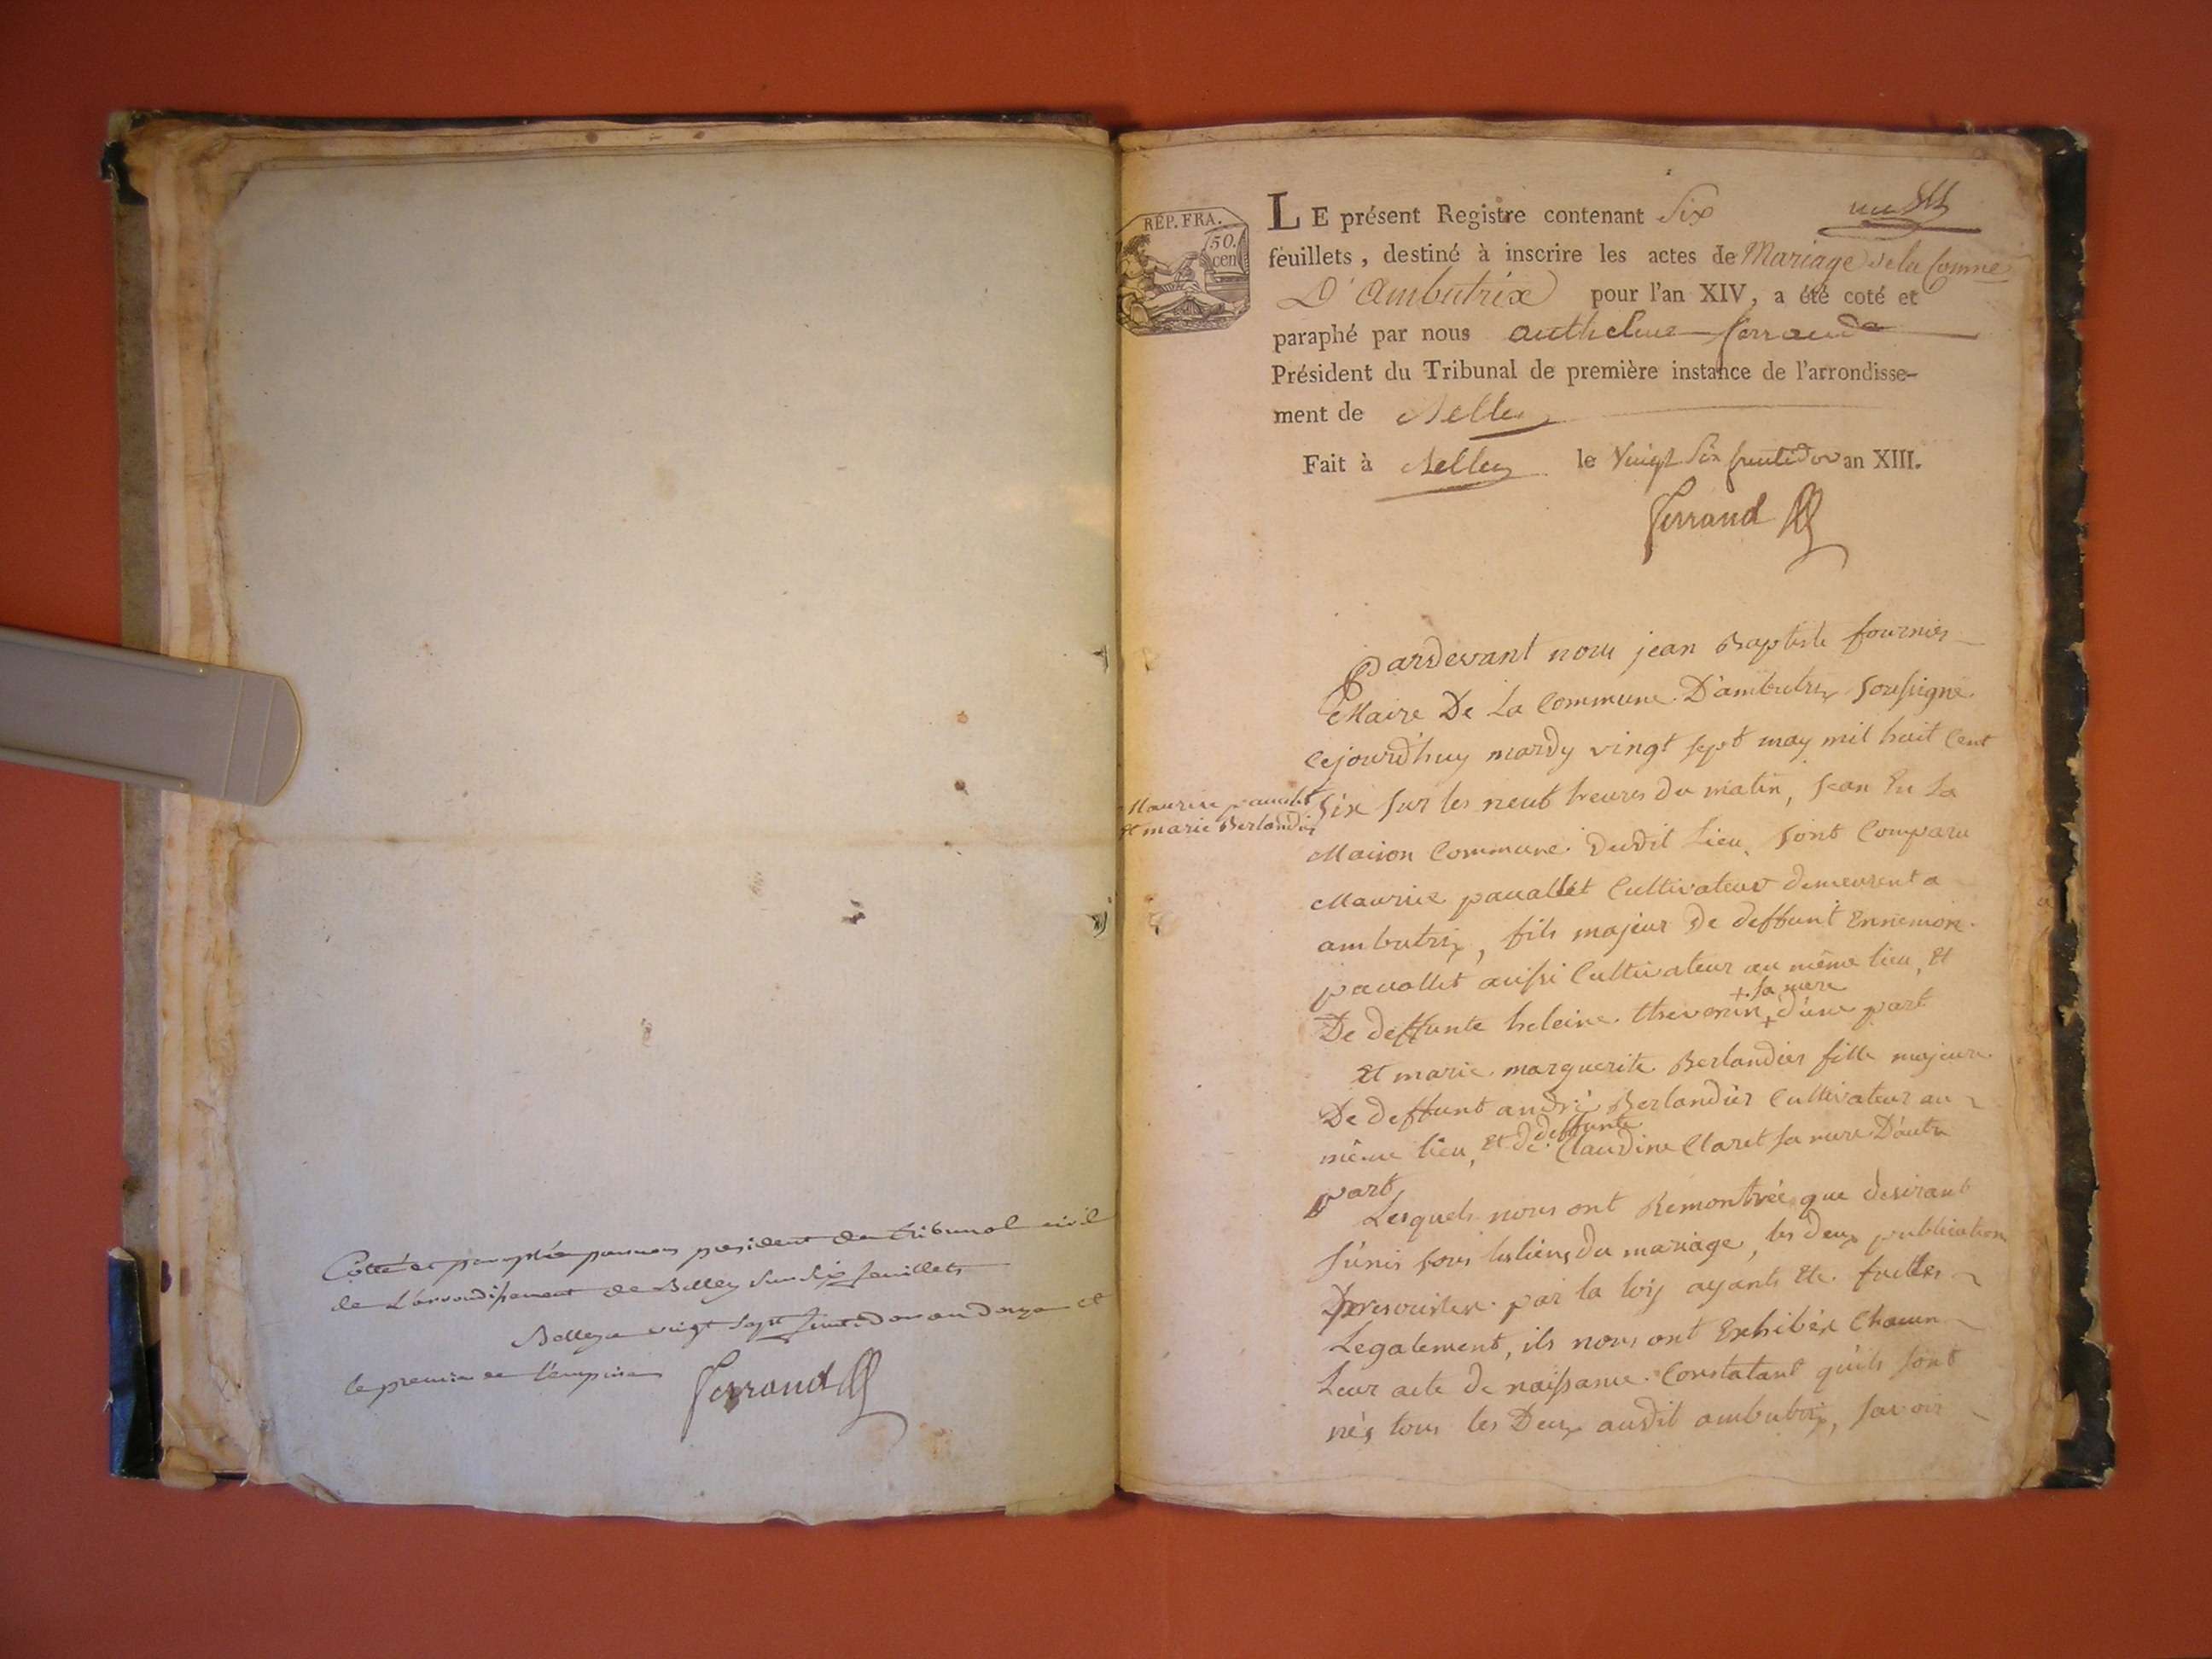 Cotté et paraphé par nous president du tribunal civil
de L'arrondissement de Belley sur six feuillets
Belley ce vingt sept fructidor an douze et
le premier de l'empire
ferrand
RÉP. FRA.
50.
cen
LE présent Registre contenant Six
feuillets, destiné à inscrire les actes de Mariage de la Comne
D'Ambutrix pour l'an XIV, a été coté et
paraphé par nous anthelme ferrand
Président du Tribunal de première instance de l'arrondisse-
ment de Belley
Fait à Belley le Vingt Six fructidor an XIII.
ferrand
Pardevant nous jean Baptiste fournier
Maire De La Commune D'ambutrix soussigné
Cejourd'huy mardy vingt sept may mil huit Cent
Maurice pauallet
et marie Berlandier
Six sur les neuf heures du matin, En La
Maison Commune dudit Lieu, sont Comparu
Maurice pauallet Cultivateur demeurent a
ambutrix, fils majeur De deffunt Ennemon
pauallet aussi Cultivateur au même lieu, Et
+ sa mere
De deffunte heleine thevenin + d'une part
Et marie marguerite Berlandier fille majeure
De deffunt andré Berlandier Cultivateur au
deffunte
même lieu, Et de Claudine Claret sa mere D'autre
part,
Lesquels nous ont Remontréé que desirant
s'unir sous les liens du mariage, les deux publication
prescrites par la loy ayants Eté faittes
Legalement, ils nous ont Exhibéx Chacun
Leur acte de naissance Constatant qu'ils sont
nés tous les Deux audit ambutrix, savoir